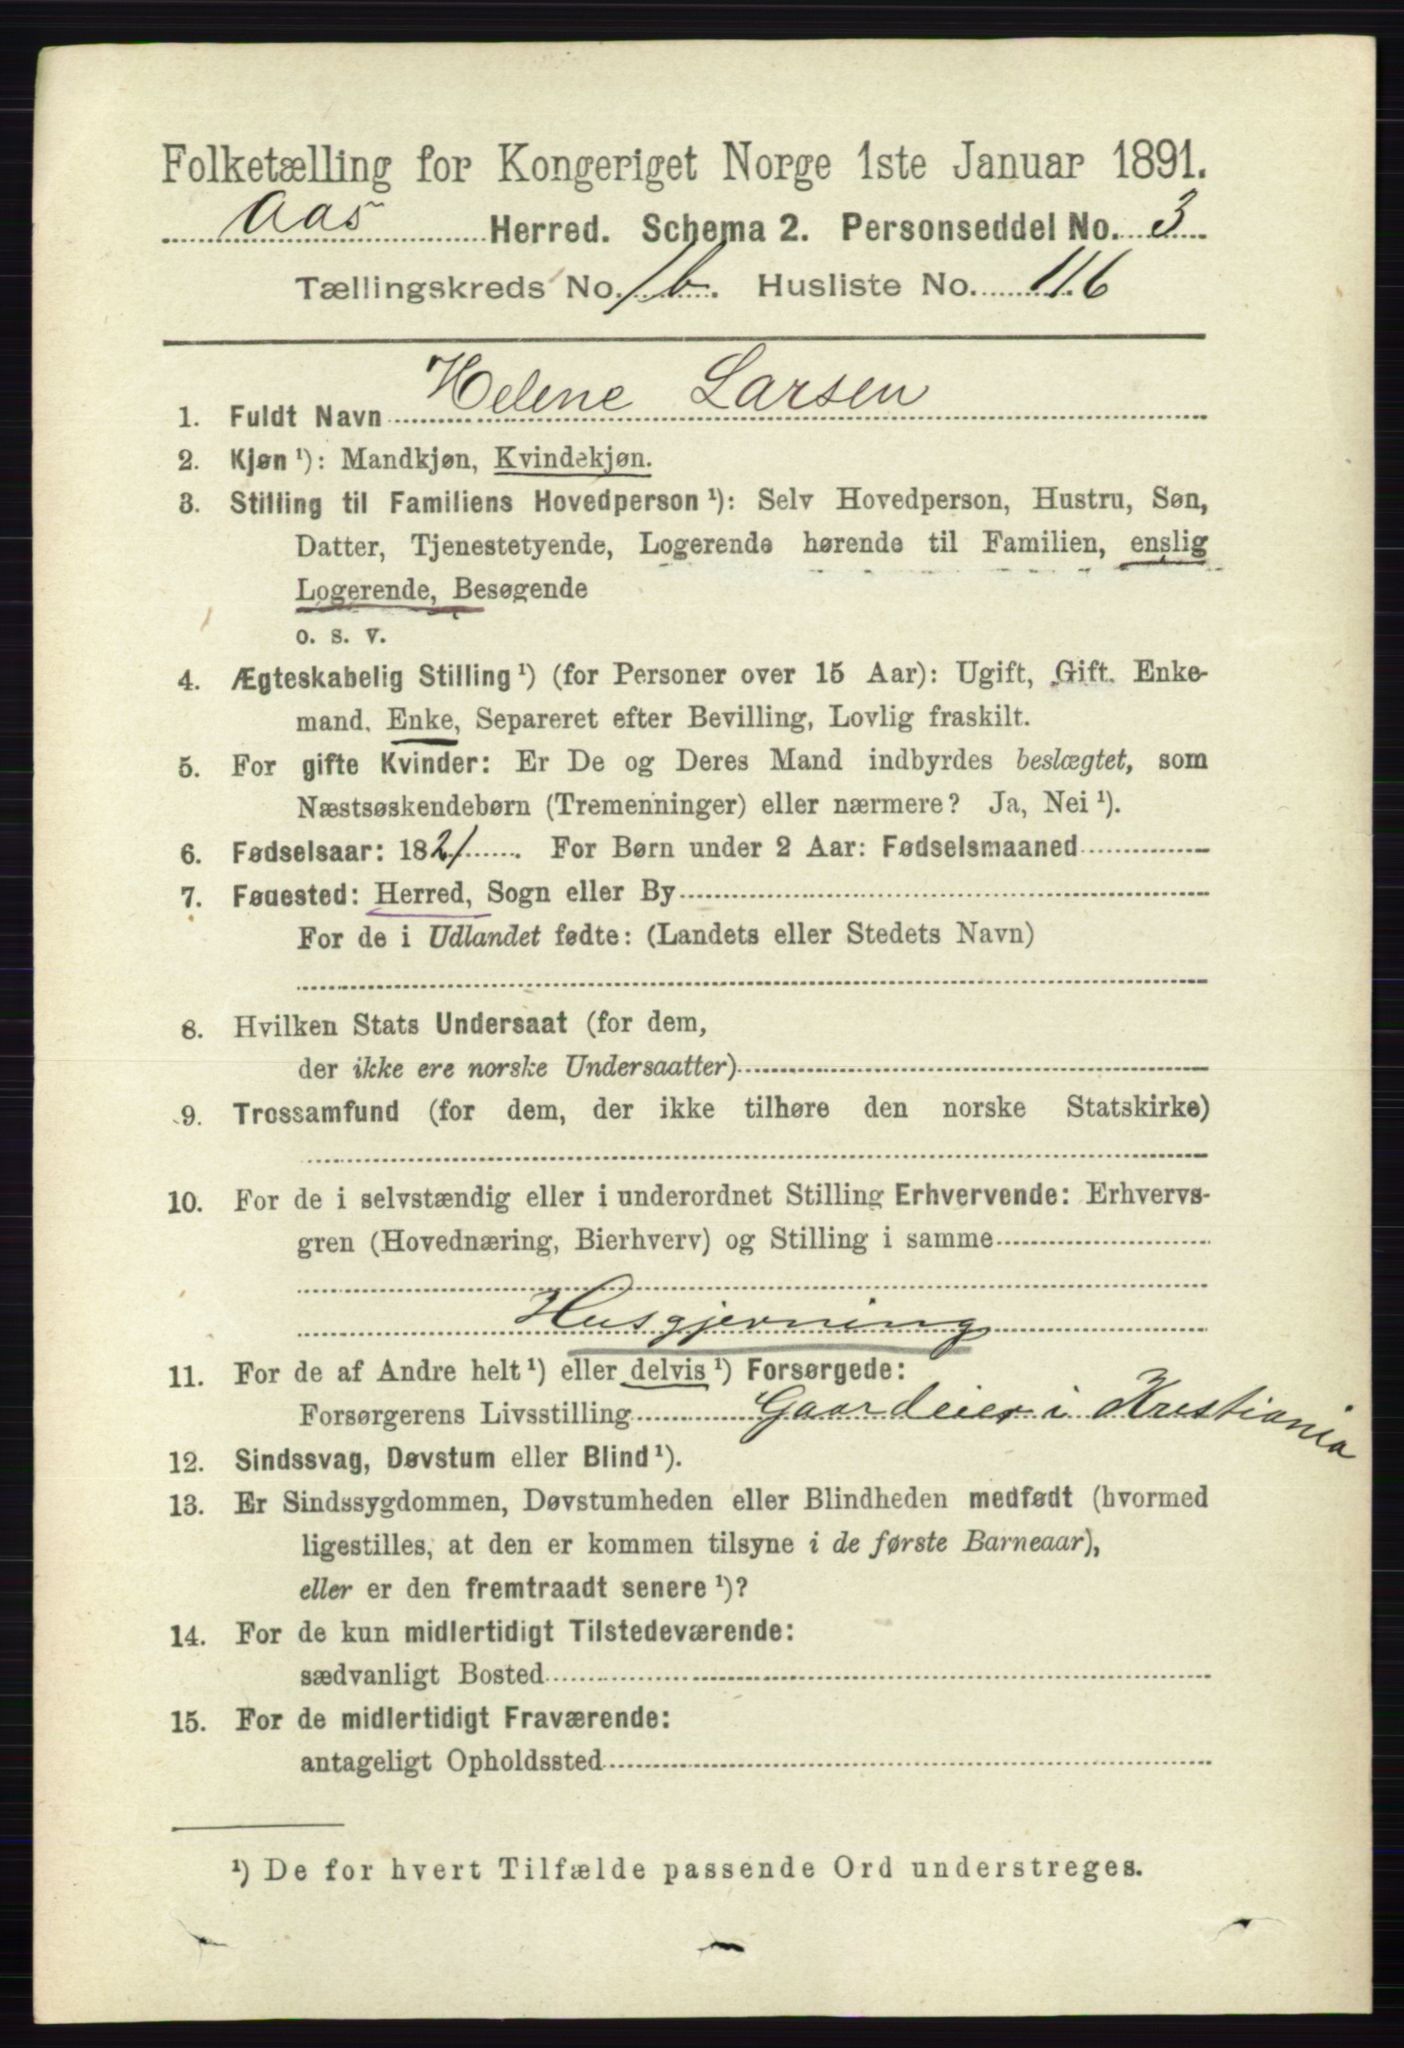 Folketælling for Kongeriget Norge 1ste Januar 1891.
Aas Herred. Schema 2. Personseddel No. 3
Tællingskreds No. 1b. Husliste No. 116
1. Fuldt Navn Helene Larsen
2. Kjøn ¹): Mandkjøn, Kvindekjøn.
3. Stilling til Familiens Hovedperson ¹): Selv Hovedperson, Hustru, Søn,
Datter, Tjenestetyende, Logerende hørende til Familien, enslig
Logerende, Besøgende
o. s. v.
4. Ægteskabelig Stilling ¹) (for Personer over 15 Aar): Ugift, Gift. Enke-
mand. Enke, Separeret efter Bevilling, Lovlig fraskilt.
5. For gifte Kvinder: Er De og Deres Mand indbyrdes beslægtet, som
Næstsøskendebørn (Tremenninger) eller nærmere? Ja, Nei ¹).
6. Fødselsaar: 1821. For Børn under 2 Aar: Fødselsmaaned
7. Føuested: Herred, Sogn eller By
For de i Udlandet fødte: (Landets eller Stedets Navn)
8. Hvilken Stats Undersaat (for dem,
der ikke ere norske Undersaatter)
9. Trossamfund (for dem, der ikke tilhøre den norske Statskirke)
10. For de i selvstændig eller i underordnet Stilling Erhvervende: Erhvervs-
gren (Hovednæring, Bierhverv) og Stilling i samme
Husgjerning
11. For de af Andre helt ¹) eller delvis ¹) Forsørgede:
Forsørgerens Livsstilling Gaardeier i Kristiania
12. Sindssvag, Døvstum eller Blind ¹).
13. Er Sindssygdommen, Døvstumheden eller Blindheden medfødt (hvormed
ligestilles, at den er kommen tilsyne i de første Barneaar),
eller er den fremtraadt senere ¹)?
14. For de kun midlertidigt Tilstedeværende:
sædvanligt Bosted
15. For de midlertidigt Fraværende:
antageligt Opholdssted
¹) De for hvert Tilfælde passende Ord understreges.